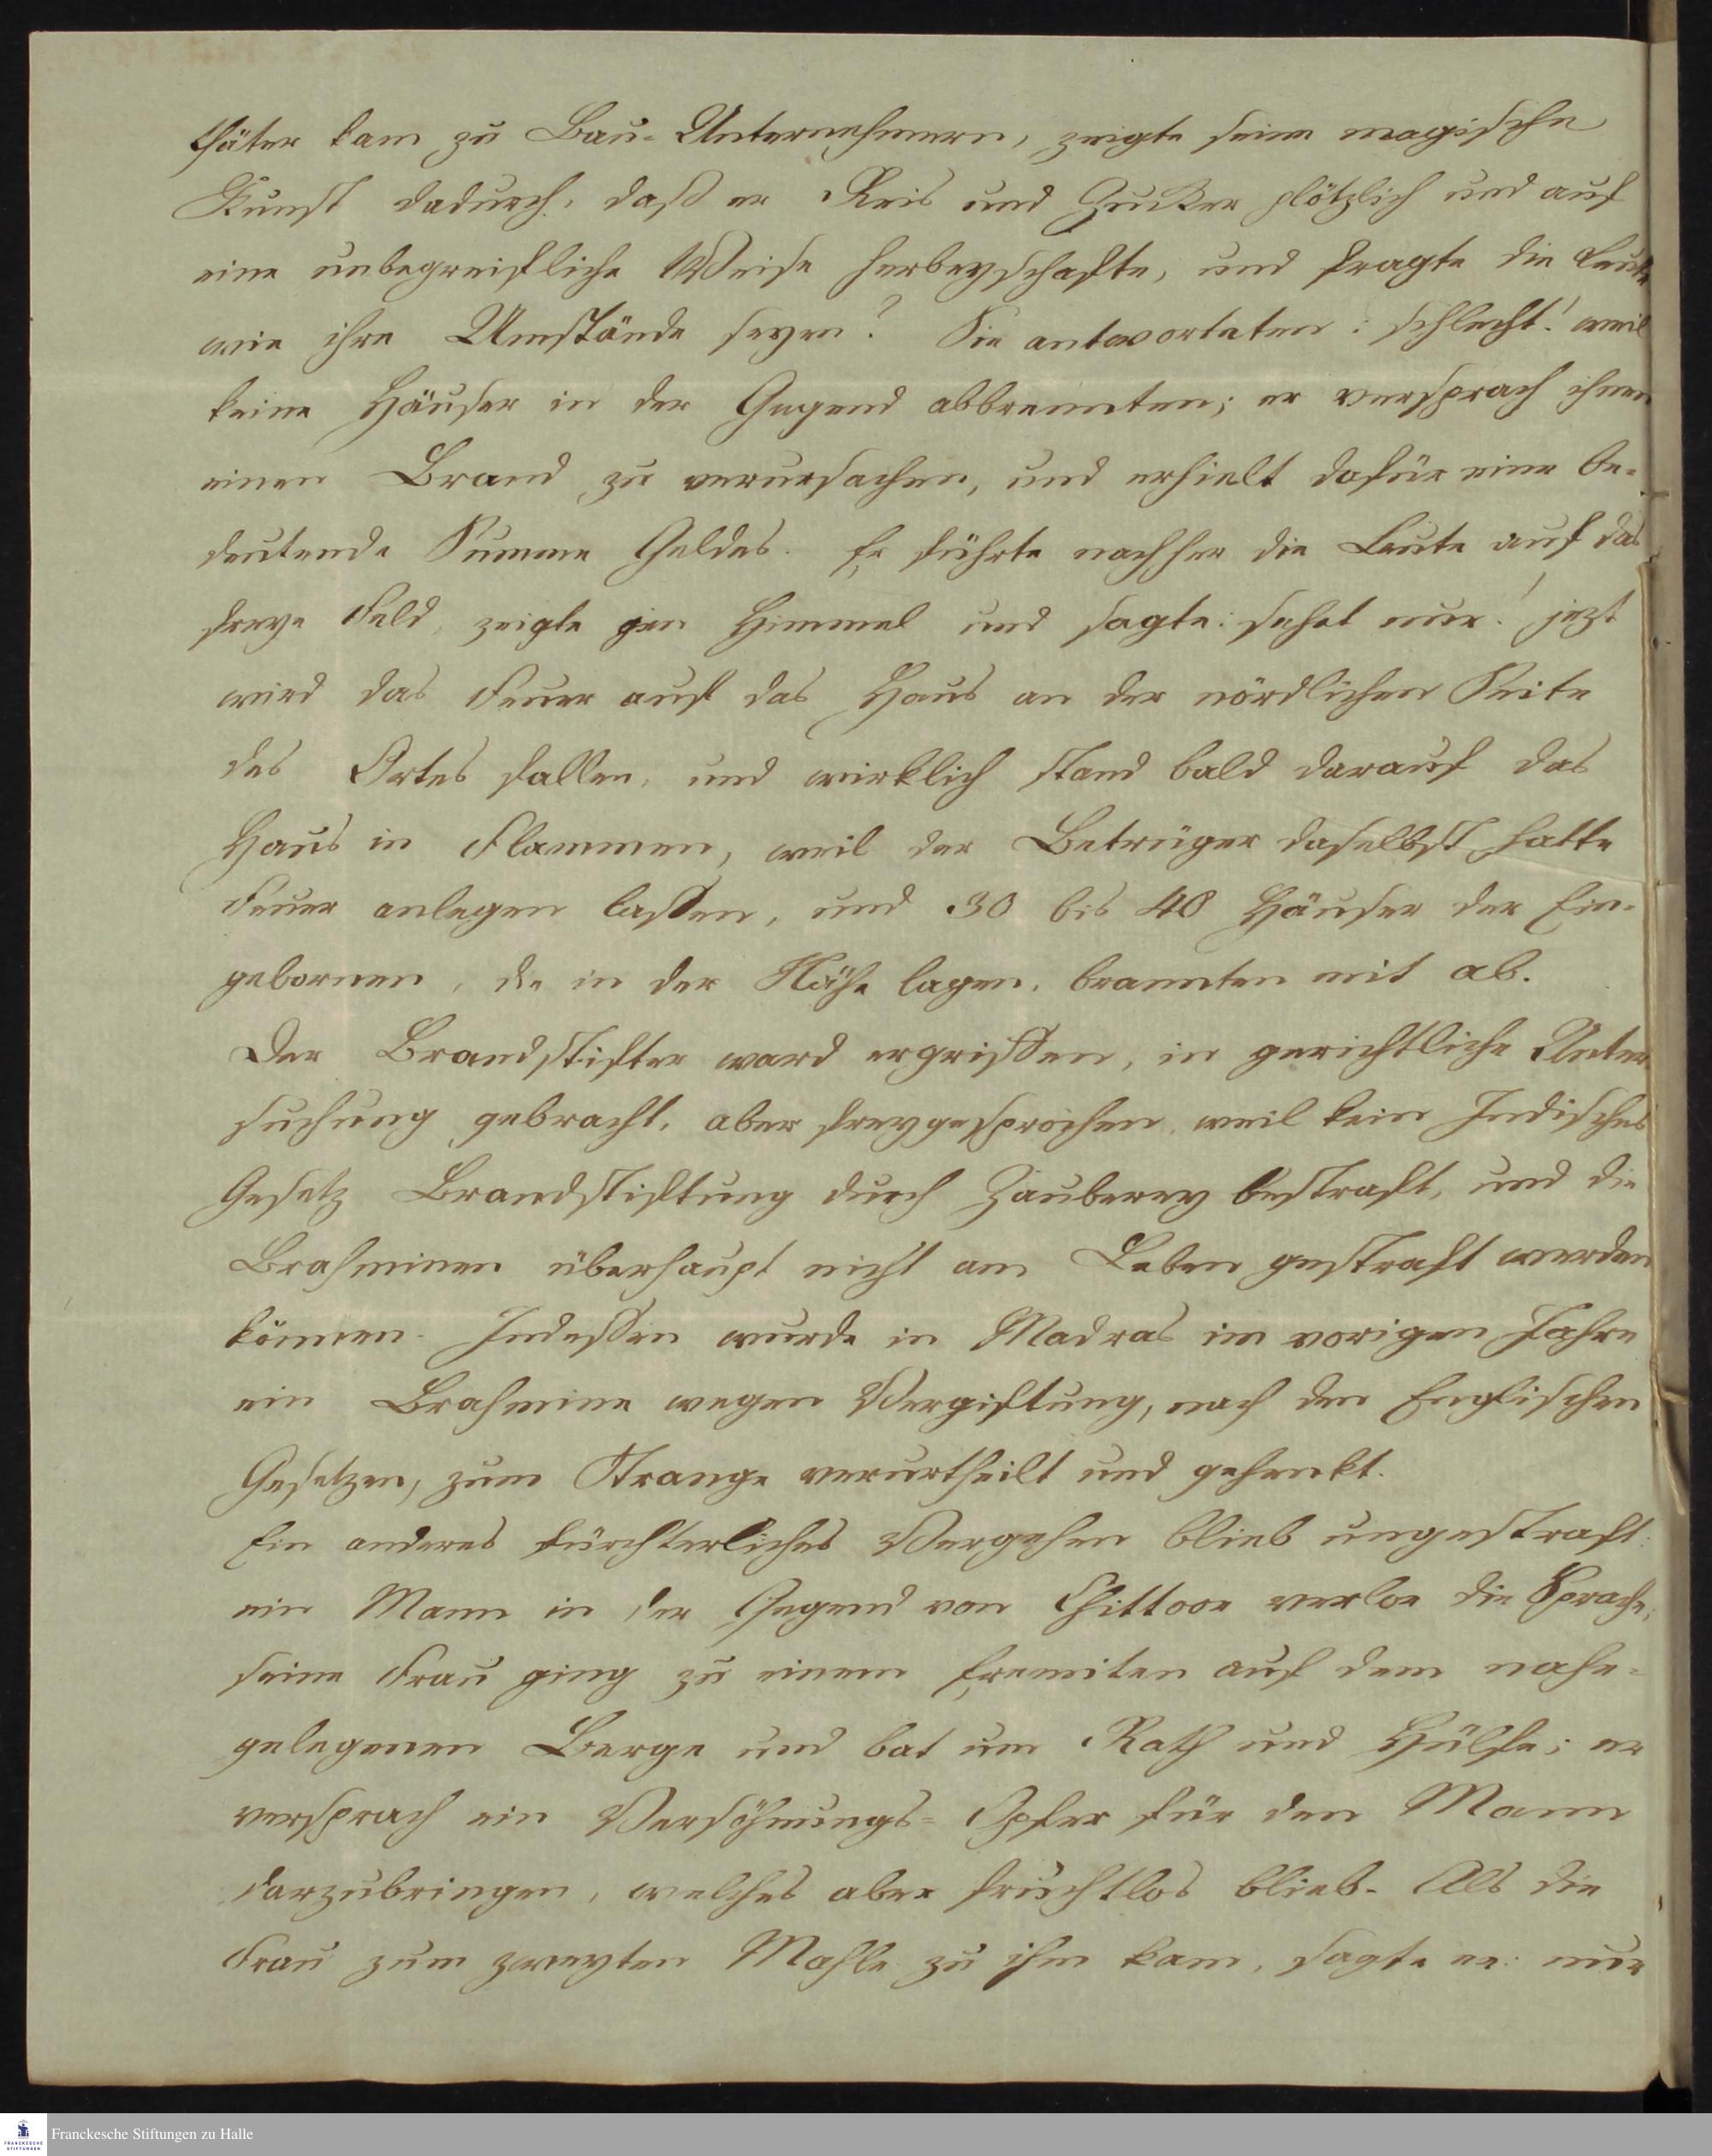 thäter kam zu Bau-Unternehmern, zeigte seine magische
Kunst dadurch, daß er Reis und Zucker plötzlich und auf
eine unbegreifliche Weise herbeyschafte, und fragte die Leute
wie ihre Umstände seyen? Sie antworteten: schlecht! weil
keine Häuser in der Gegend abbrennten; er versprach ihnen
einen Brand zu verursachen, und erhielt dafür eine be-
deutende Summe Geldes. Er führte nachher die Leute auf das
freye Feld, zeigte gen Himmel und sagte: sehet nur! jezt
wird das Feuer auf das Haus an der nördlichen Seite
des Ortes fallen, und wirklich stand bald darauf das
Haus in Flammen, weil der Betrüger daselbst hatte
Feuer anlegen lassen, und 30 bis 40 Häuser der Ein-
gebornen, die in der Nähe lagen, brannten mit ab.
Der Brandstifter ward ergriffen, in gerichtliche Unter-
suchung gebracht, aber freygesprochen, weil kein Indisches
Gesetz Brandstiftung durch Zauberey bestraft, und die
Brahminen überhaupt nicht am Leben gestraft werden
können. Indessen wurde in Madras im vorigen Jahre
ein Brahmine wegen Vergiftung, nach den Englischen
Gesetzen, zum Strange verurtheilt und gehenkt.
Ein anderes fürchterliches Vergehen blieb ungestraft:
ein Mann in der Gegend von Chittoor verlor die Sprache;
seine Frau ging zu einem Eremiten auf dem nahe-
gelegenen Berge und bat um Rath und Hülfe; er
versprach ein Versöhnungs-Opfer für den Mann
darzubringen, welches aber fruchtlos blieb. Als die
Frau zum zweyten Mahle zu ihm kam, sagte er: nur
FRANCKESCHE
STIFTUNGEN
Franckesche Stiftungen zu Halle